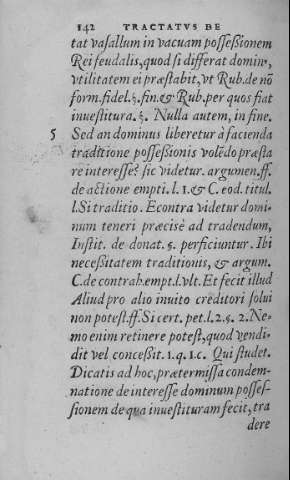 142 TRACTATVS DE
tat vasallum in vacuam possessionem
Rei feudalis, quod si differat domin⁹,
vtilitatem ei præstabit, vt Rub. de nõ
form. fidel. §. fin. & Rub. per quos fiat
inuestitura. §. Nulla autem, in fine.
5 Sed an dominus liberetur à facienda
traditione possessionis volẽdo præsta
re interesse? sic videtur. argumen. ff.
de actione empti. l. 1. & C. eod. titul.
l. Si traditio. Econtra videtur domi-
num teneri præcisè ad tradendum,
Instit. de donat. §. perficiuntur. Ibi
necessitatem traditionis, & argum.
C. de contrah. empt. l. vlt. Et fecit illud
Aliud pro alio inuito creditori solui
non potest. ff. Si cert. pet. l. 2. §. 2. Ne-
mo enim retinere potest, quod vendi-
dit vel concessit. 1. q. 1. c. Qui studet.
Dicatis ad hoc, prætermissa condem-
natione de interesse dominum posses-
sionem de qua inuestituram fecit, tra
dere